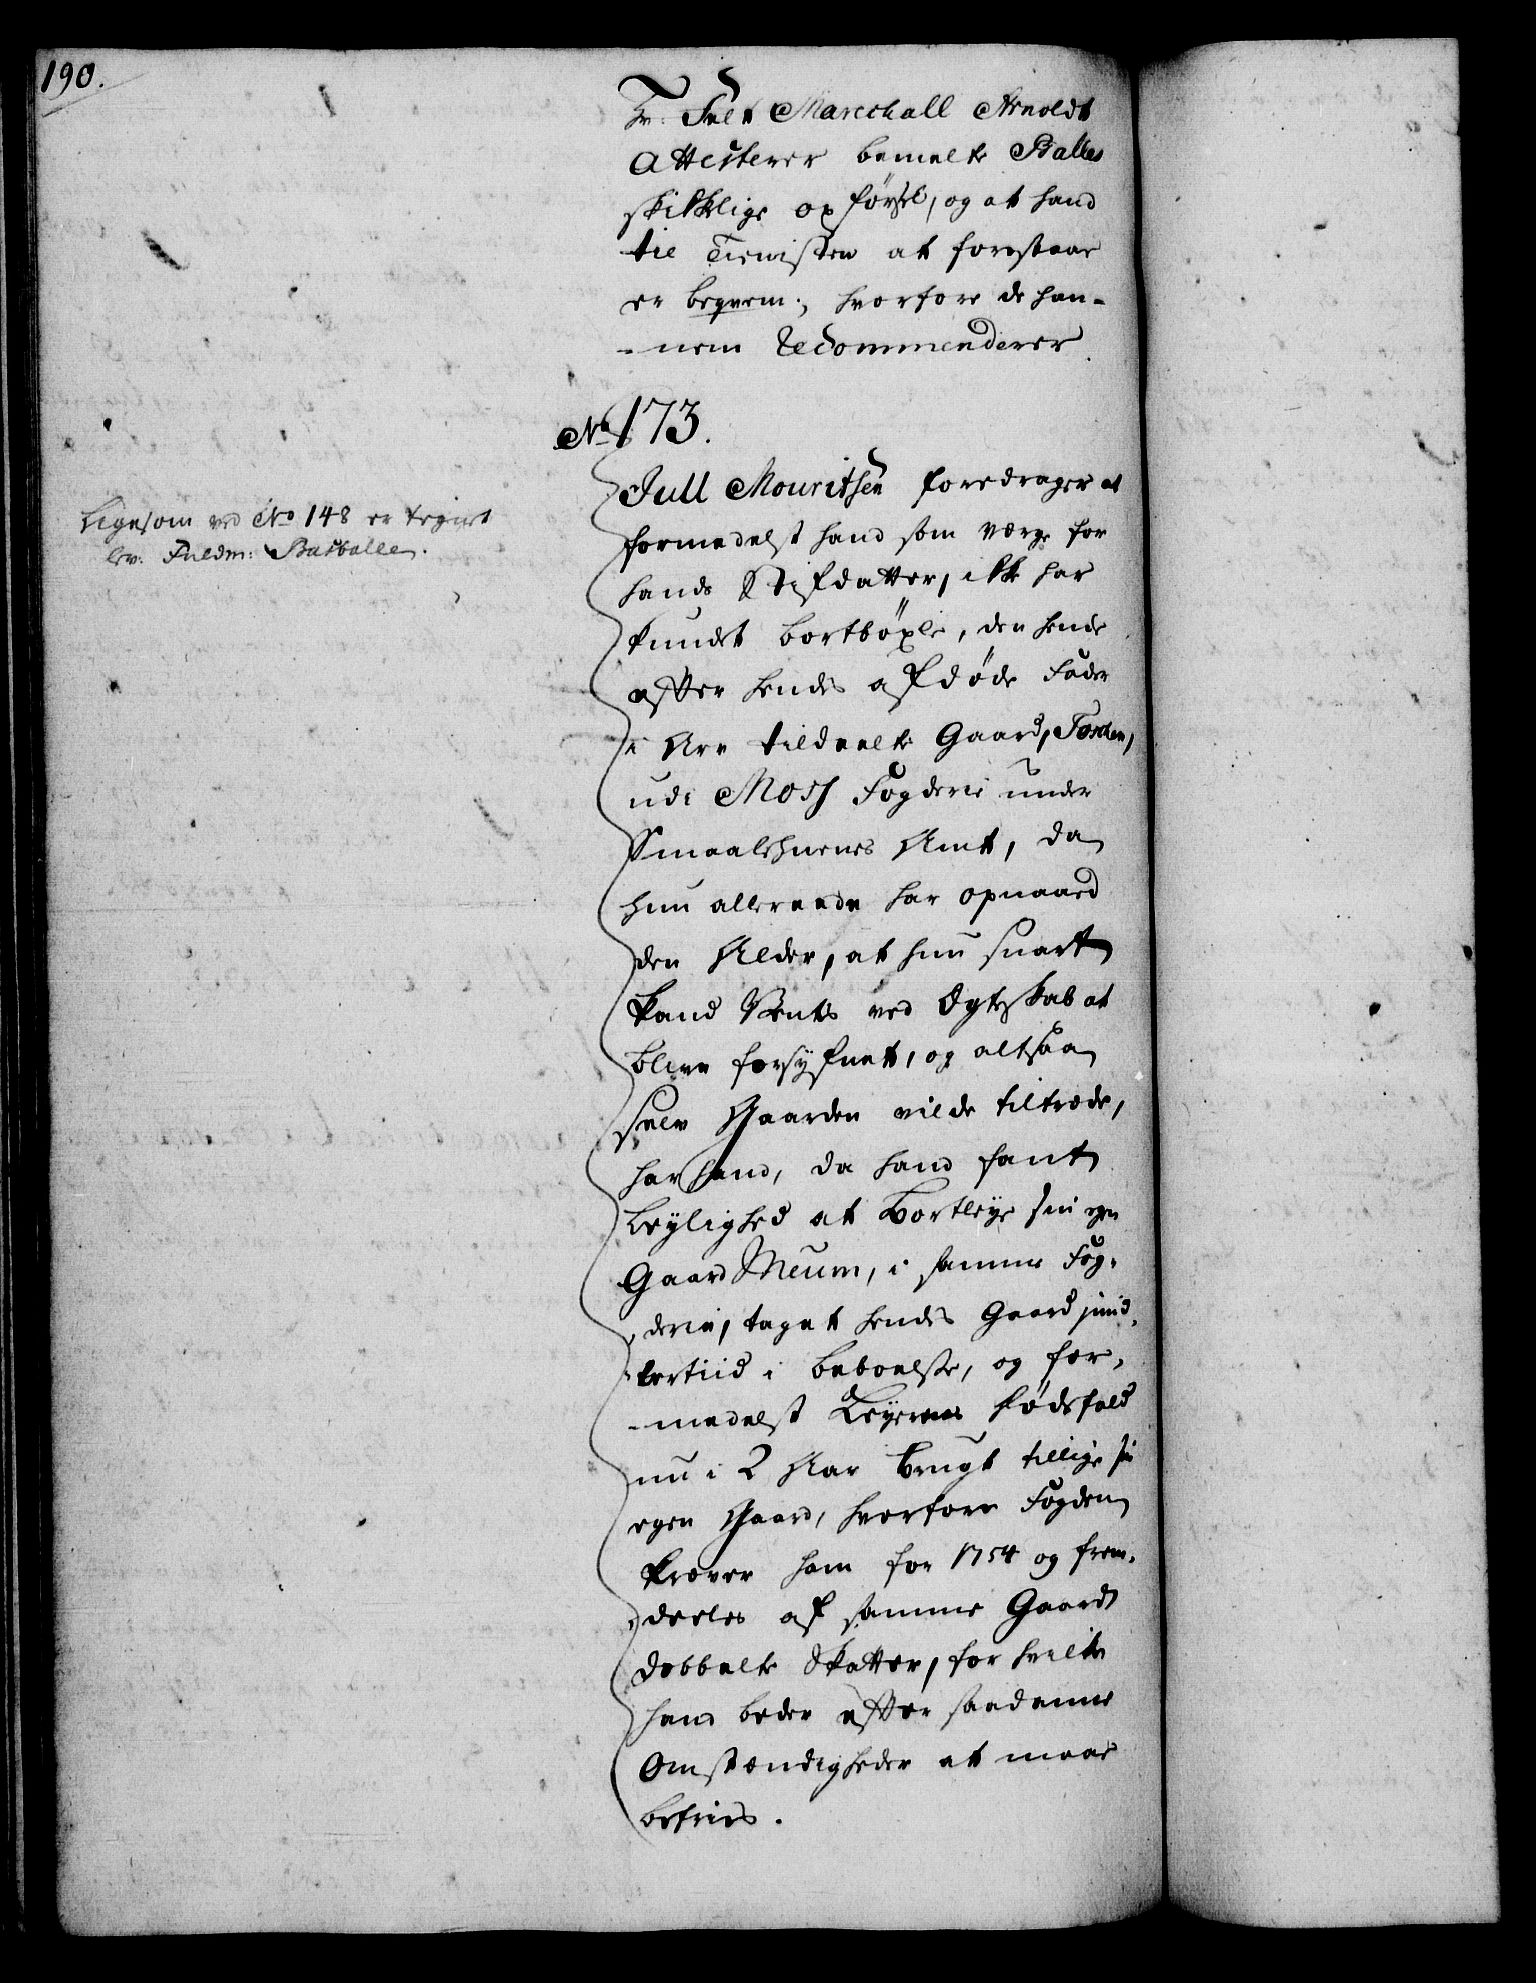 190.
Hr. Felt Marschall Arnoldt
Attesterer bemelte Balles
skikkelige opførsel, og at hand
til Tienisten at forestaae
er beqvem; hvorfore de han-
-nem Recommenderer
No 173.
Jull Mouritsen foredrager at
formedelst hand som værge for
hands Stifdatter, ikke har
kundet bortböxle, den hende
efter hendes afdøde Fader
i Arv tildeelte Gaard,
udi Moss Fogderie under
Smaalehnenes Amt, da
hun allereede har opnaaed
den Alder, at hun snart
kand Ventes ved Ægteskab at
blive forsÿnet, og altsaa
selv Gaarden vilde tiltræde,
har hand, da hand fant
leÿlighed at Bortleÿe sin egen
Gaard Meum, i samme Fog-
derie, taget hendes Gaard imid-
lertiid i beboelse, og for-
-medelst Leÿerens dødsfald
nu i 2 Aar brugt tillige sin
egen Gaard, hvorfore Fogden
kræver ham for 1754 og frem-
deeles af samme Gaard
dobbelte Skatter, for hvilke
hand beder efter saadanne
Omstændigheder at maae
befries.
Ligesom ved No 148 er tegnet
lev. Fuldm: Basballe.